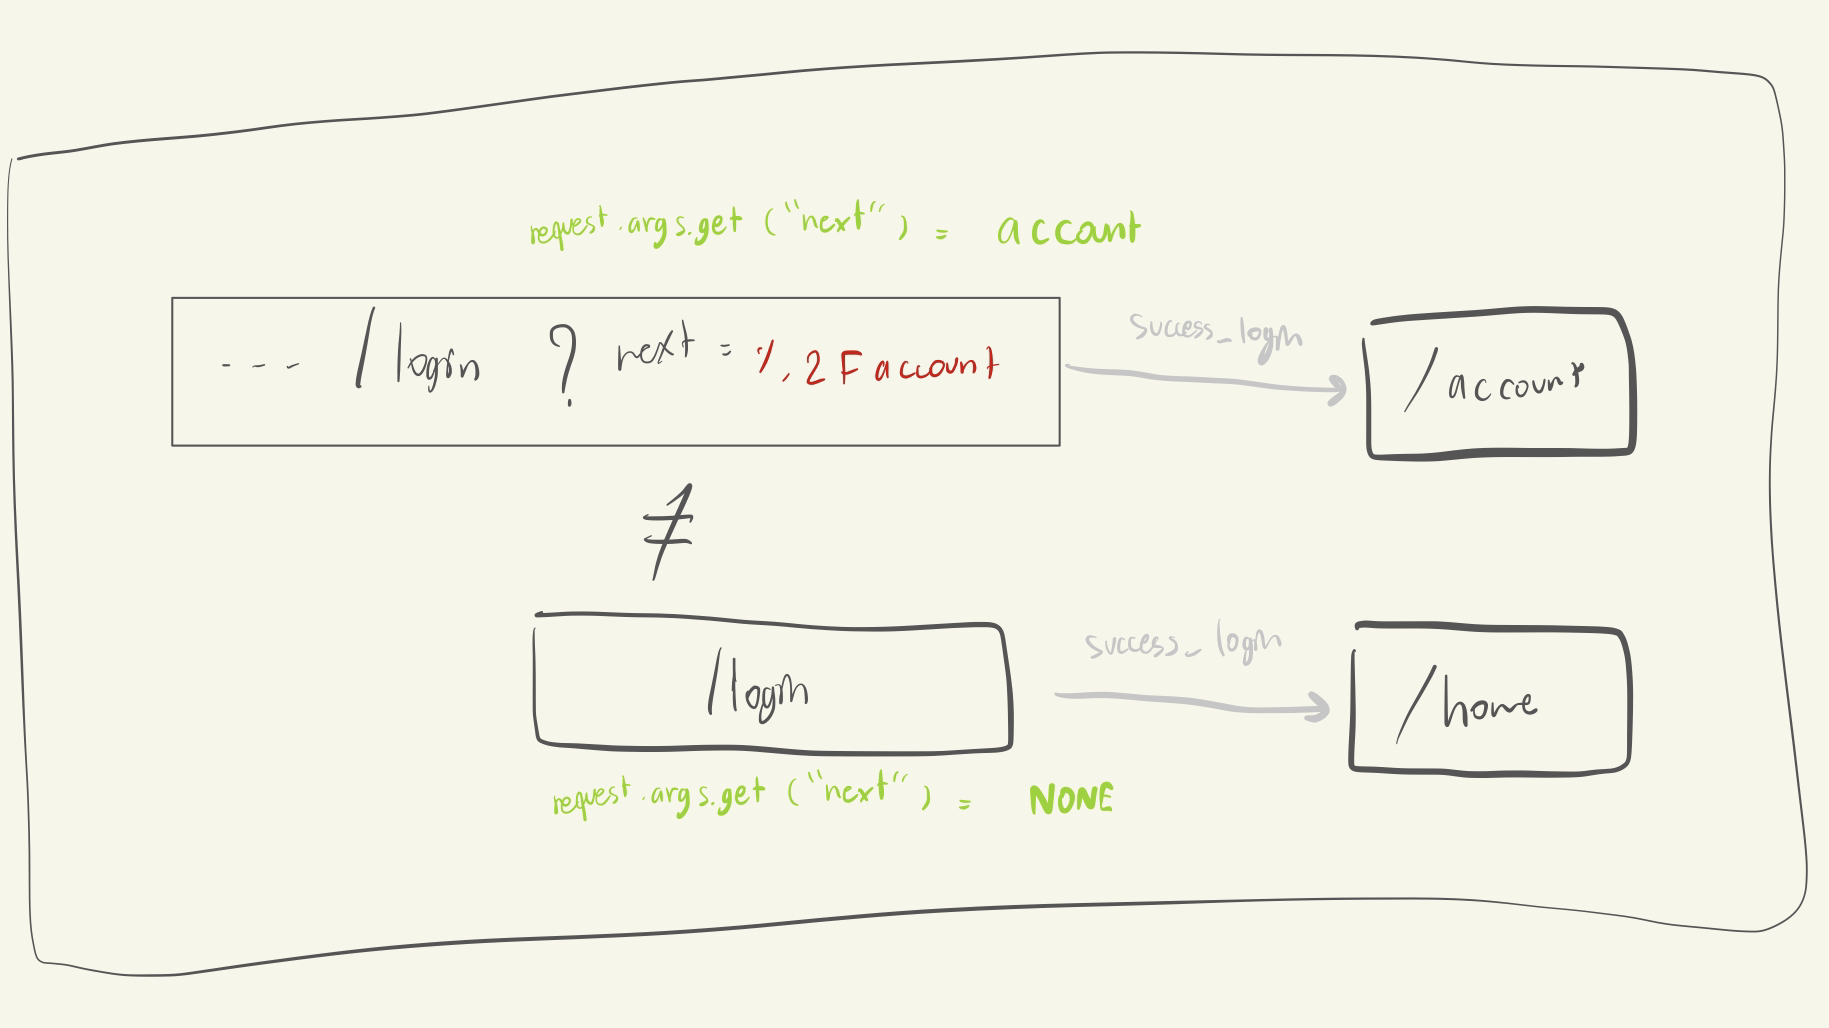 request.args.get ("next") = account
--- /login ? next = %2Faccount
success_login
/account
≠
/login
success_login
/home
request.args.get ("next") = NONE